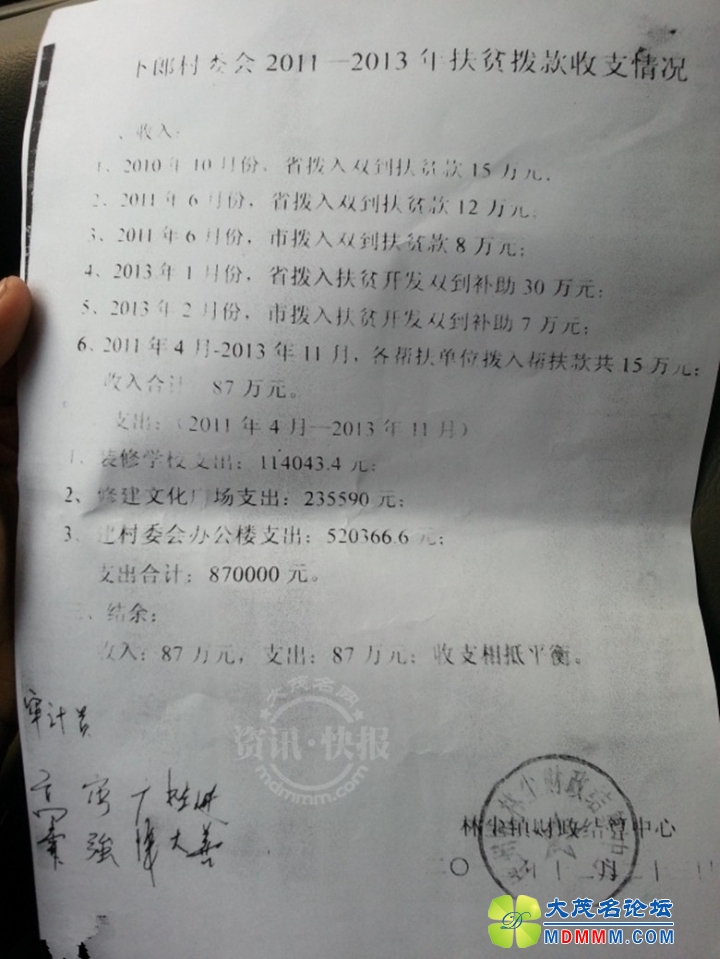 下郎村委会2011—2013年扶贫拨款收支情况
、收入：
1、2010年10月份，省拨入双到扶贫款15万元；
2、2011年6月份，省拨入双到扶贫款12万元；
3、2011年6月份，市拨入双到扶贫款8万元；
4、2013年1月份，省拨入扶贫开发双到补助30万元；
5、2013年2月份，市拨入扶贫开发双到补助7万元；
6、2011年4月-2013年11月，各帮扶单位拨入帮扶款共15万元；
收入合计 87万元。
支出：（2011年4月—2013年11月）
1、装修学校支出：114043.4元；
2、修建文化广场支出：235590元；
3、建村委会办公楼支出：520366.6元；
支出合计：870000元。
三、结余：
收入：87万元，支出：87万元；收支相抵平衡。
大茂名网
资讯·快报
mdmmm.com
审计员
强 大善
林尘财政结算中
林尘镇财政结算中心
二〇 年十二月二十 日
大茂名论坛
MDMMM.COM